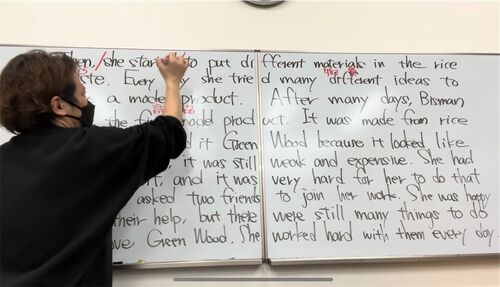 Then, she started to put different materials in the rice
Every she tried many different ideas to
a model product. After many days, Bisman
the model product. It was made from rice
it Green Wood because it looked like
it was still weak and expensive. She had
it, and it was very hard for her to do that
asked two friends to join her work. She was happy
their help, but there were still many things to do
Green Wood. She worked hard with them every day.